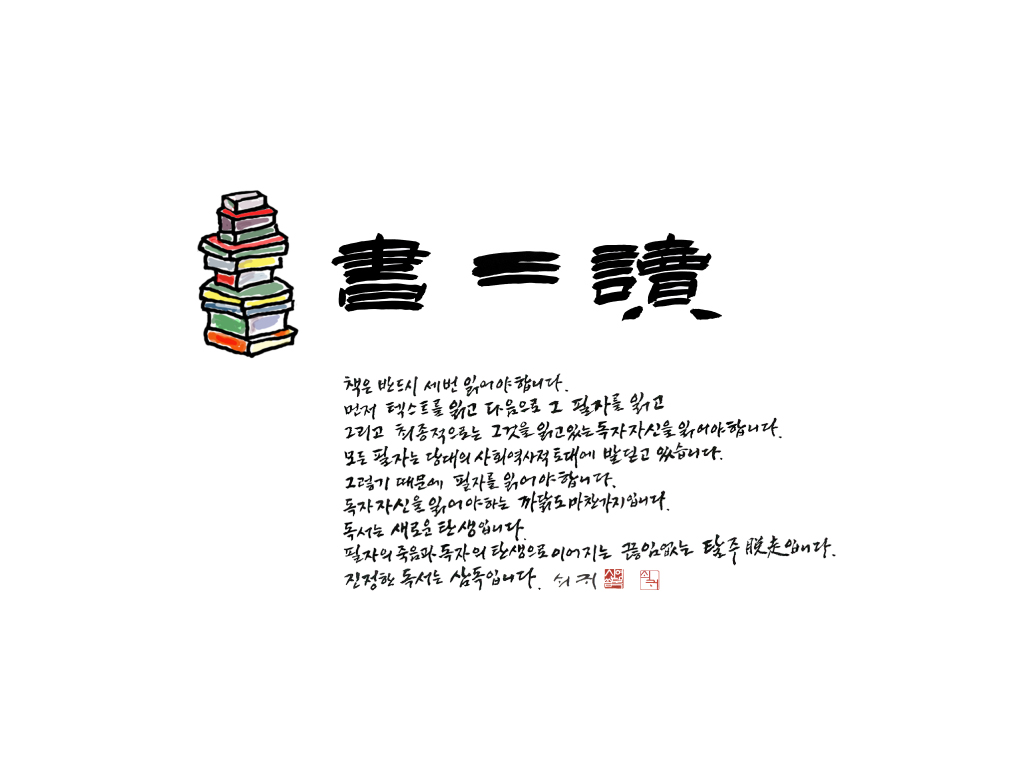 書三讀
책은 반드시 세번 읽어야 합니다.
먼저 텍스트를 읽고 다음으로 그 필자를 읽고
그리고 최종적으로는 그것을 읽고 있는 독자 자신을 읽어야 합니다.
모든 필자는 당대의 사회역사적 토대에 발 딛고 있습니다.
그렇기 때문에 필자를 읽어야 합니다.
독자 자신을 읽어야 하는 까닭도 마찬가지입니다.
독서는 새로운 탄생입니다.
필자의 죽음과 독자의 탄생으로 이어지는 끊임없는 탈주脫走입니다.
진정한 독서는 삼독입니다. 쇠귀